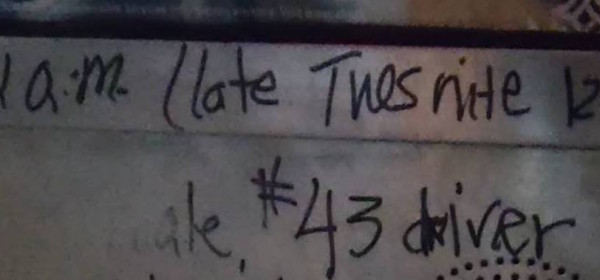 a.m. (late Tues nite
#43 driver